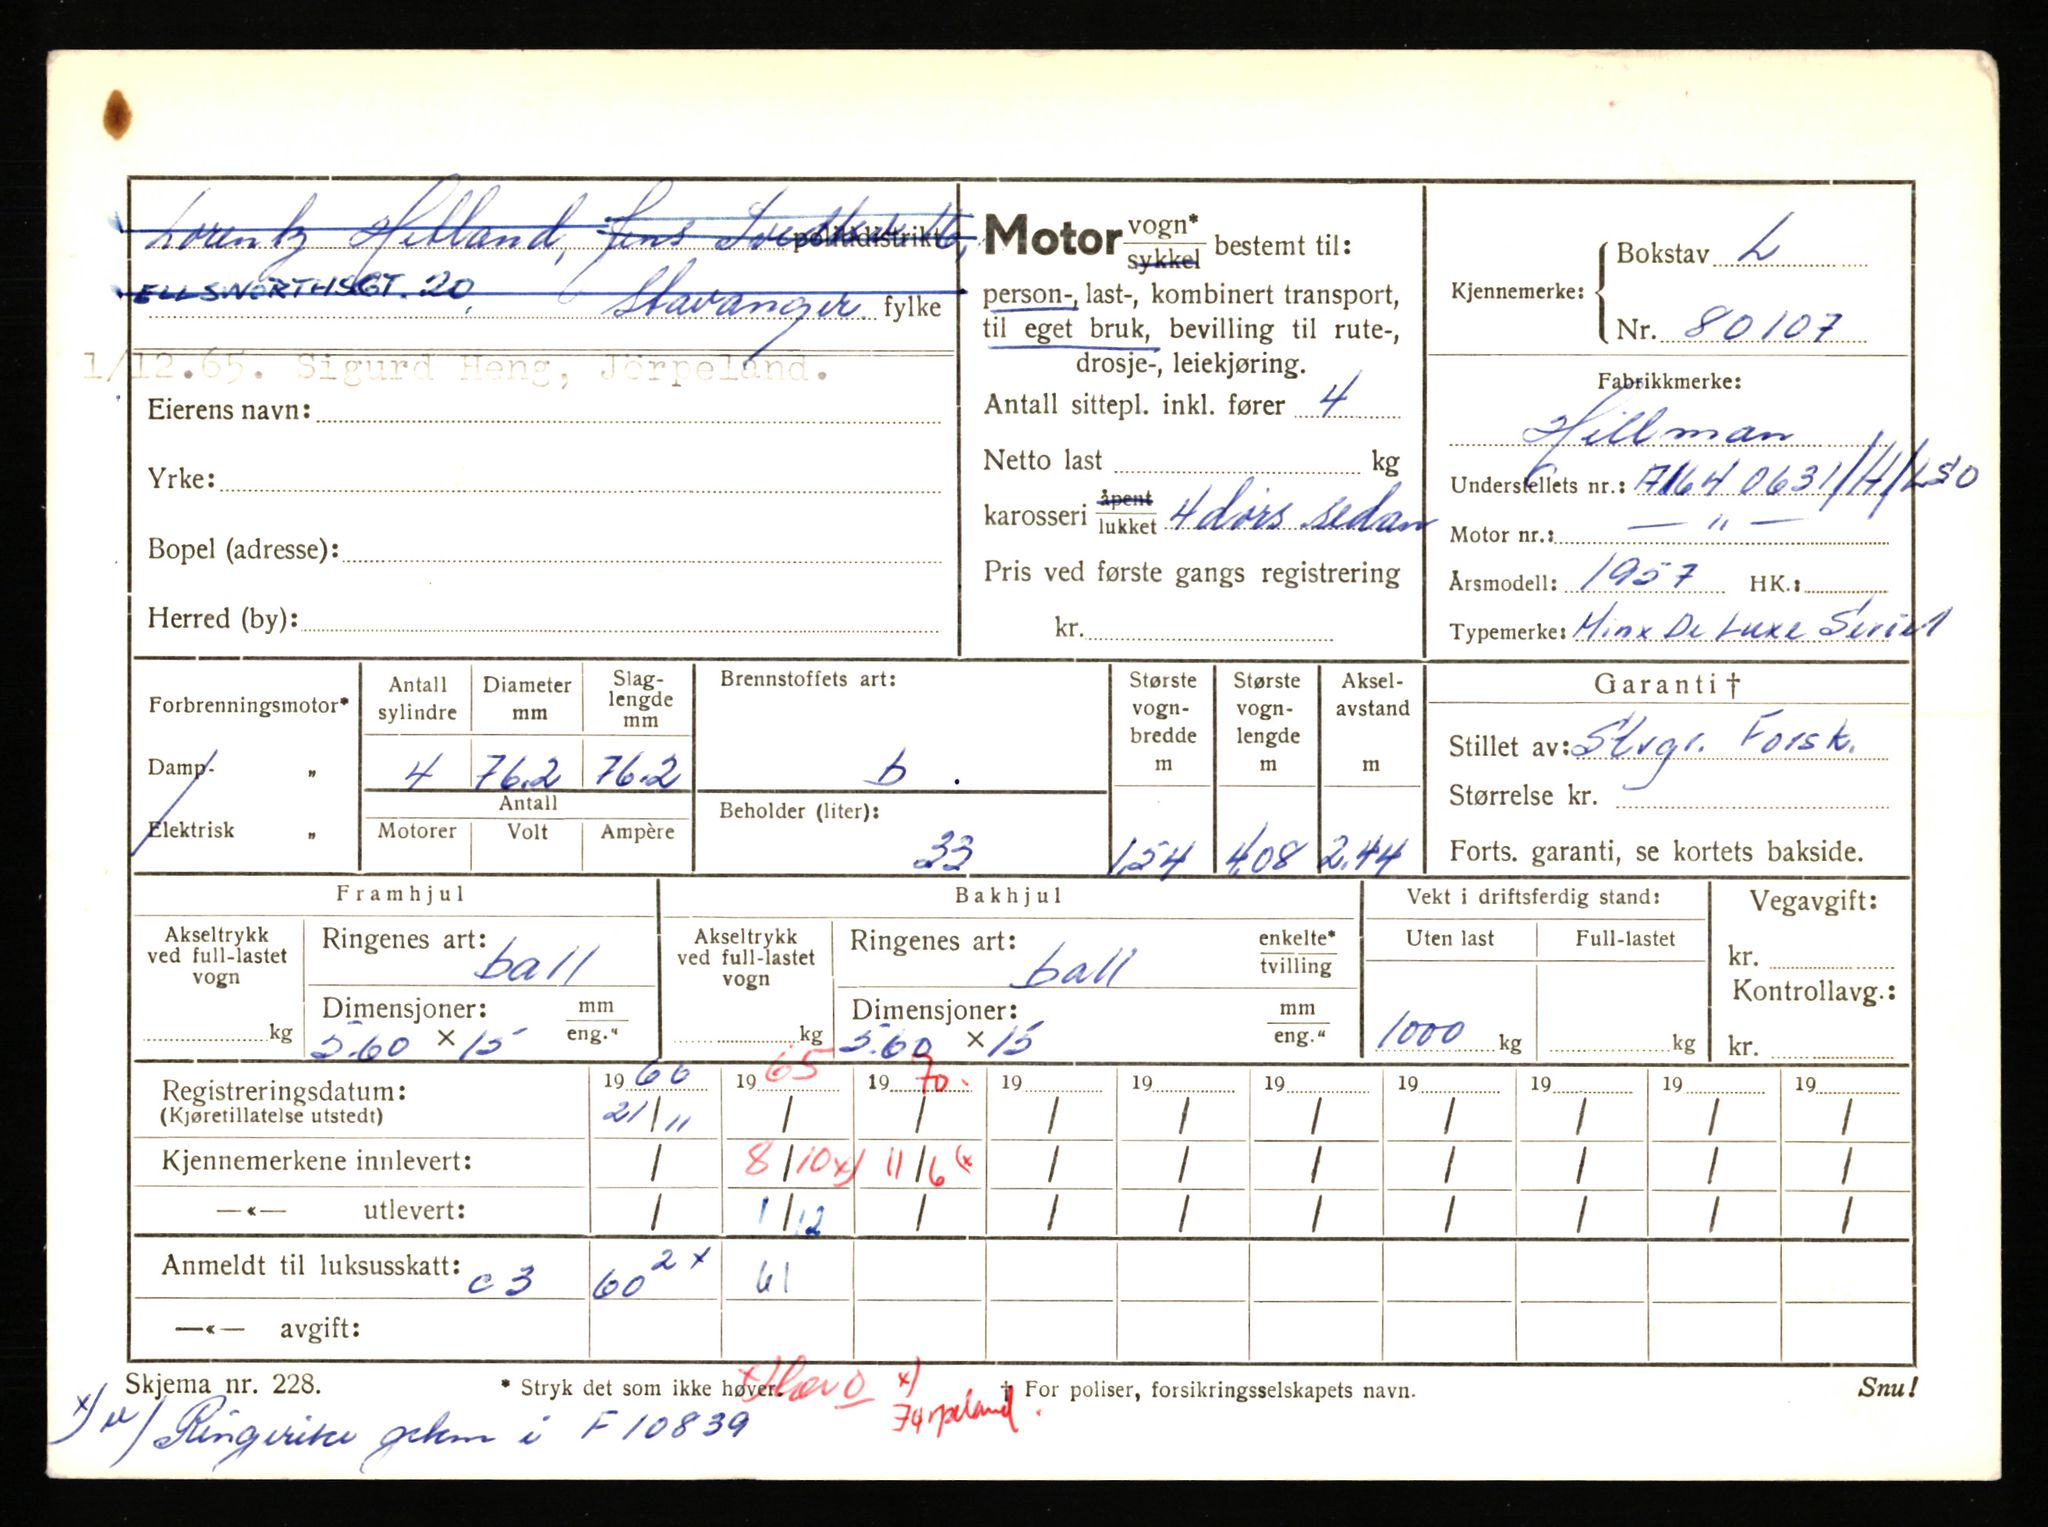 Lorentz Helland, Jens politidistrikt,
ELLSWORTHSGT. 20. Stavanger. fylke
1/12.65. Sigurd Heng, Jörpeland.
Eierens navn:
Yrke:
Bopel (adresse):
Herred (by):
Motor vogn* sykkel bestemt til:
person-, last-, kombinert transport,
til eget bruk, bevilling til rute-,
drosje-, leiekjøring.
Antall sittepl. inkl. fører 4
Netto last kg
karosseri åpent lukket 4 dørs sedan
Pris ved første gangs registrering
kr.
Kjennemerke: Bokstav L
Nr. 80107
Fabrikkmerke:
Hillman
Understellets nr.: A1640631/H/LSO
Motor nr.: — " —
Årsmodell: 1957 HK.:
Typemerke: Minx De Luxe Serie 1
Forbrenningsmotor*
Damp- "
Elektrisk "
Antall sylindre
Diameter mm
Slag-lengde mm
4 76.2 76.2
Antall
Motorer Volt Ampère
Brennstoffets art:
b .
Beholder (liter):
33
Største vogn-bredde m
1,54
Største vogn-lengde m
4,08
Aksel-avstand m
2.44
Garanti †
Stillet av: Stvgr. Forsk.
Størrelse kr.
Forts. garanti, se kortets bakside.
Framhjul
Akseltrykk ved full-lastet vogn
kg
Ringenes art: ball
Dimensjoner: mm eng."
5.60 × 15
Bakhjul
Akseltrykk ved full-lastet vogn
kg
Ringenes art: ball enkelte* tvilling
Dimensjoner: mm eng."
5.60 × 15
Vekt i driftsferdig stand:
Uten last Full-lastet
1000 kg kg
Vegavgift:
kr.
Kontrollavg.:
kr.
Registreringsdatum: 1960 1965 1970. 19 19 19 19 19 19 19
(Kjøretillatelse utstedt) 21/11 / / / / / / / / /
Kjennemerkene innlevert: / 8/10 x) 11/6 (x / / / / / / /
—«— utlevert: / 1/12 / / / / / / / /
Anmeldt til luksusskatt: c3 60 2 x 61
—«— avgift:
Skjema nr. 228. * Stryk det som ikke høver. † For poliser, forsikringsselskapets navn. Snu!
x) x) Jørpeland.
x) Ringerike i F 10839